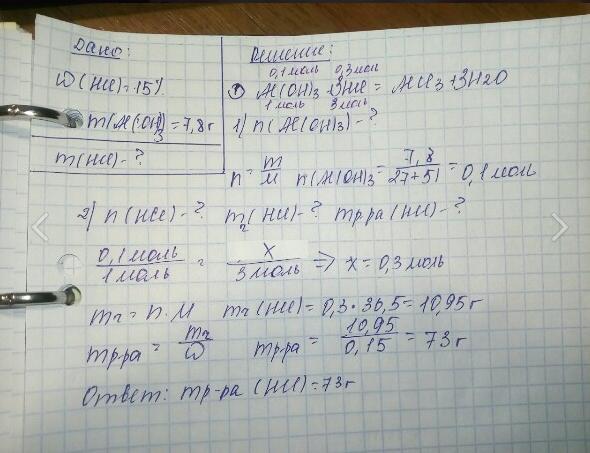 Дано:
ω(HCl)=15%
m(Al(OH)3)=7,8г
m(HCl)-?
Решение:
0,1моль 0,3моль
① Al(OH)3 + 3HCl = AlCl3 + 3H2O
1моль 3моль
1) n(Al(OH)3)-?
n = m/M n(Al(OH)3 = 7,8/27+51 = 0,1моль
2) n(HCl)-? m2(HCl)-? mр-ра(HCl)-?
0,1моль/1моль = x/3моль => x = 0,3моль
mr = n·M mr(HCl) = 0,3·36,5 = 10,95г
mр-ра = mr/ω mр-ра = 10,95/0,15 = 73г
Ответ: mр-ра (HCl) = 73г